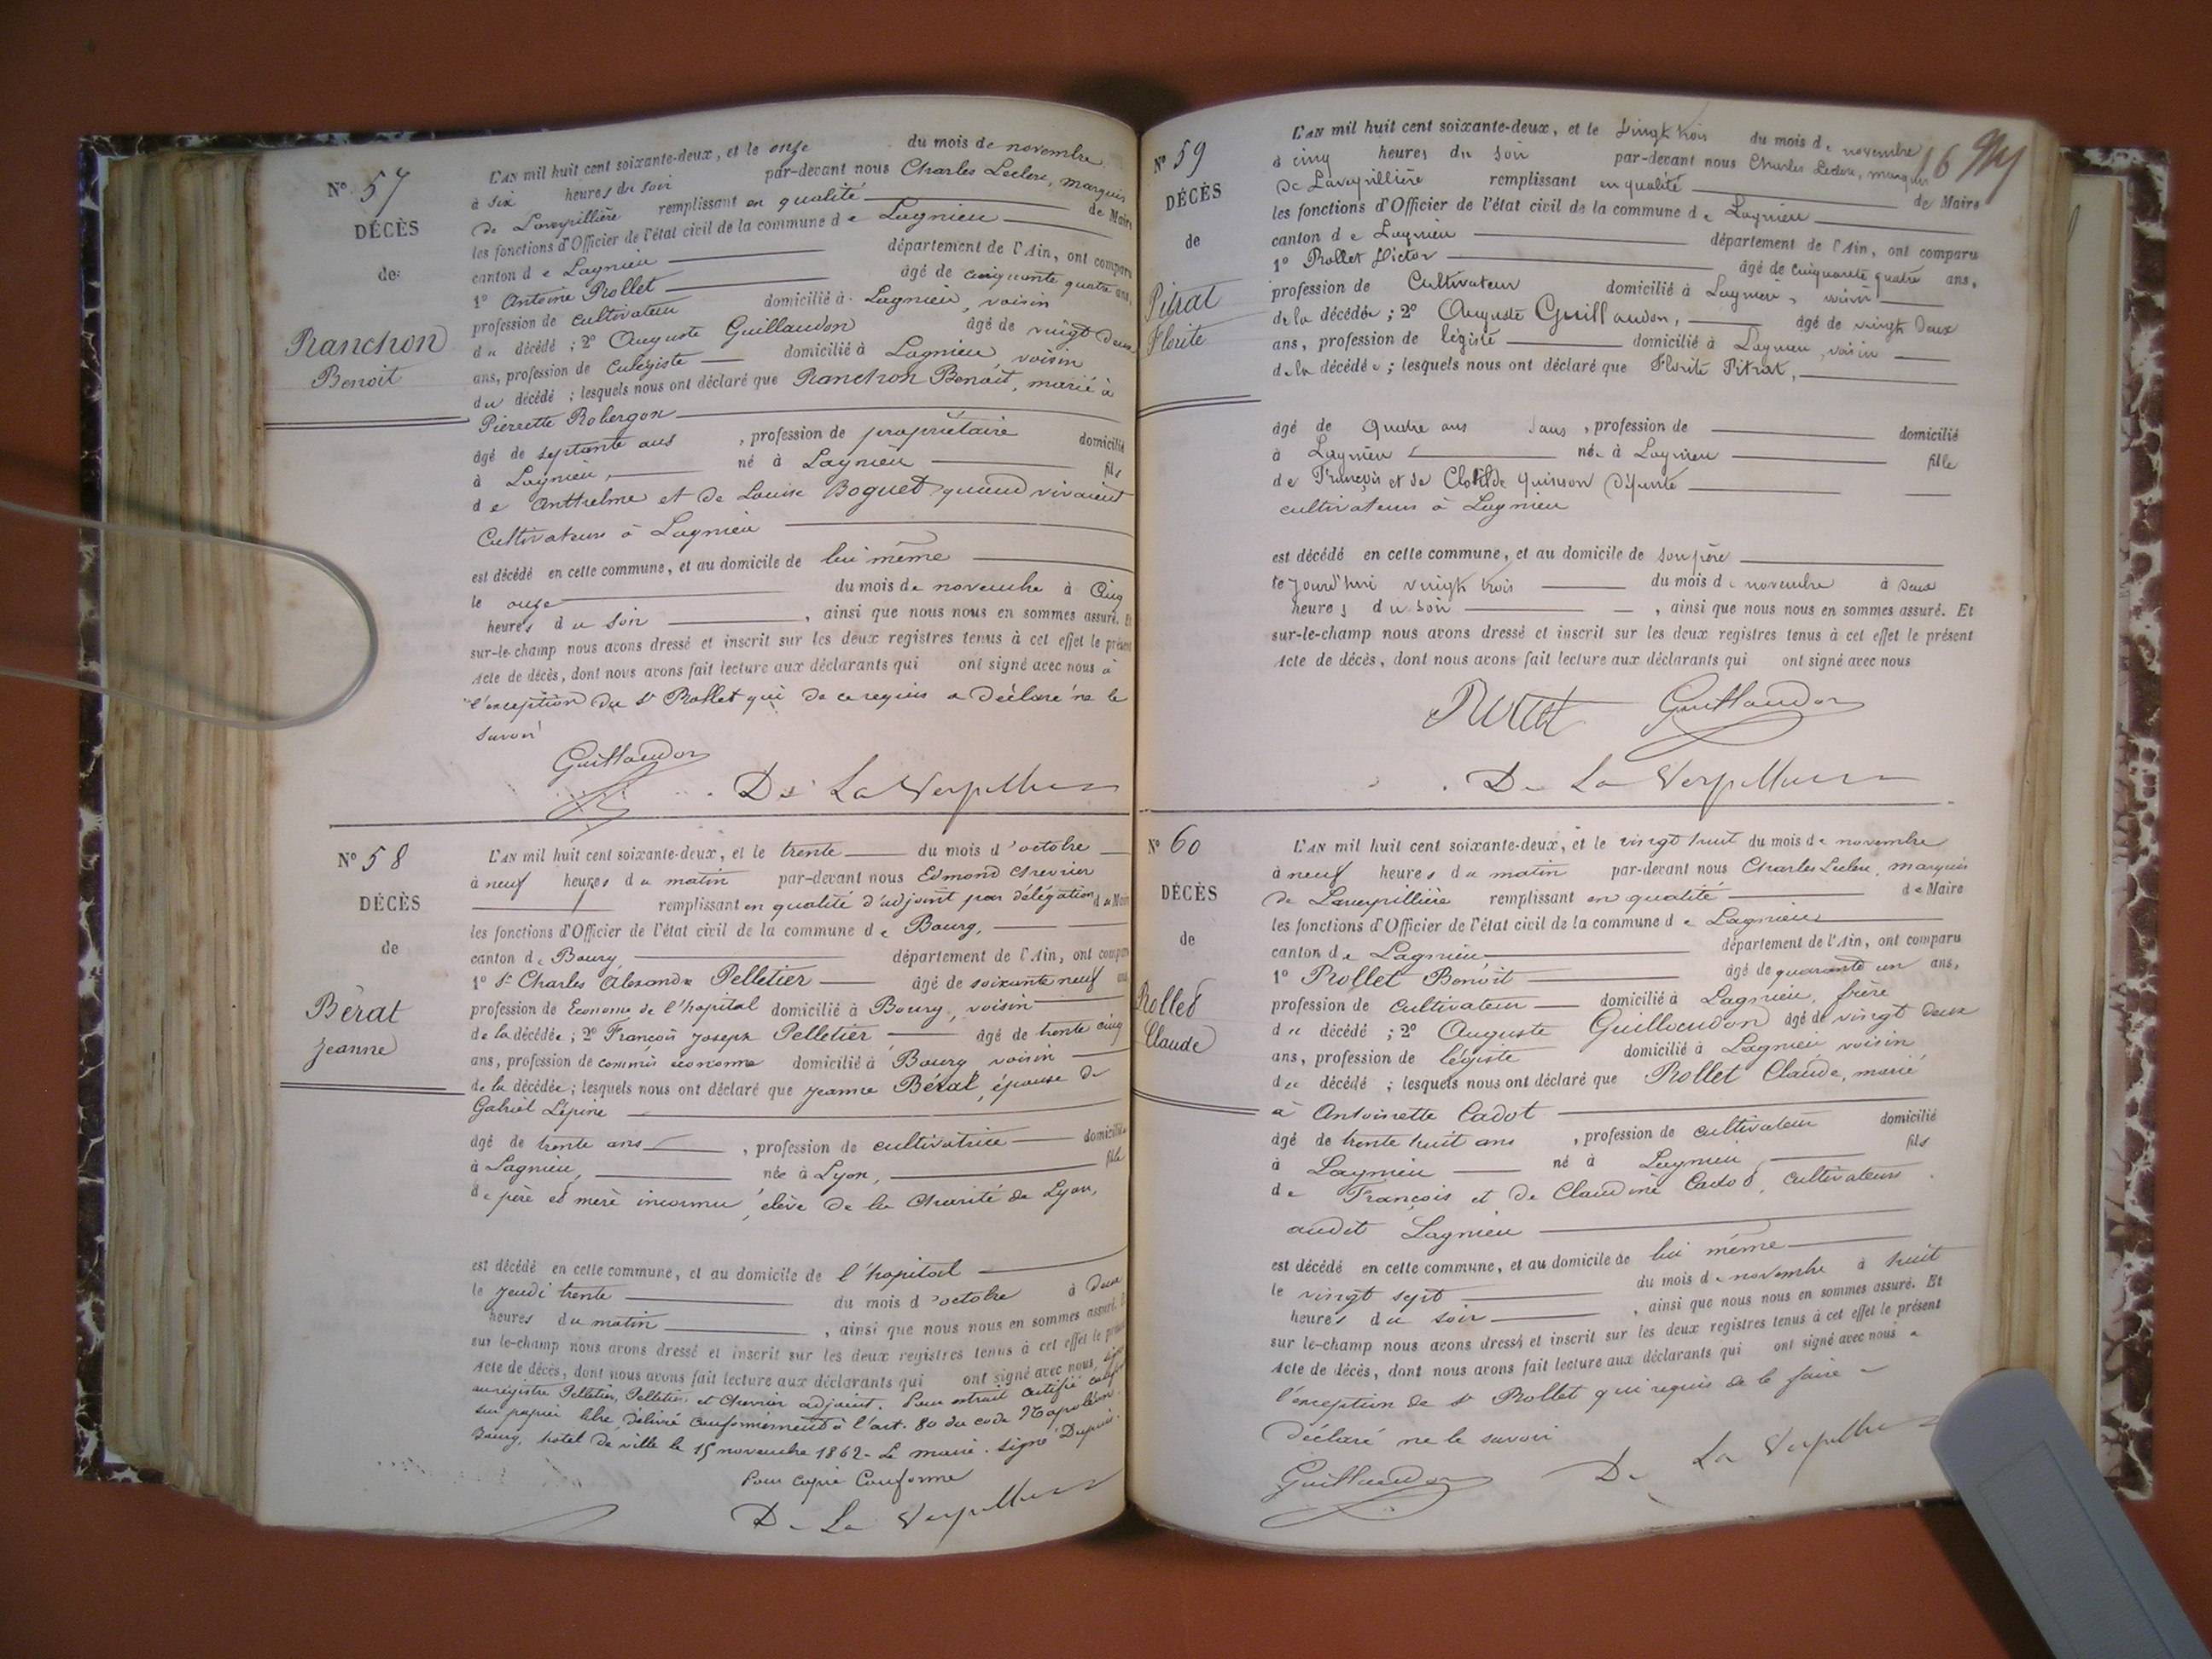 N° 57
DÉCÈS
de
Ranchon
Benoit
L'AN mil huit cent soixante-deux, et le onze du mois de novembre
à six heures du soir par-devant nous Charles Leclerc, marquis
de Laverpillière remplissant en qualité de Maire
les fonctions d'Officier de l'état civil de la commune de Lagnieu
canton de Lagnieu département de l'Ain, ont comparu
1° Antoine Rollet âgé de cinquante quatre ans,
profession de cultivateur domicilié à Lagnieu, voisin
du décédé ; 2° Auguste Guillaudon âgé de vingt deux
ans, profession de domicilié à Lagnieu voisin
du décédé ; lesquels nous ont déclaré que Ranchon Benoit, marié à
Pierrette Robergon
âgé de septante ans , profession de propriétaire domicilié
à Lagnieu, né à Lagnieu fils
de Anthelme et de Louise Boguet quand vivaient
Cultivateurs à Lagnieu
est décédé en cette commune, et au domicile de lui même
le onze du mois de novembre à Cinq
heures du soir , ainsi que nous nous en sommes assuré. Et
sur-le-champ nous avons dressé et inscrit sur les deux registres tenus à cet effet le présent
Acte de décès, dont nous avons fait lecture aux déclarants qui ont signé avec nous à
l'exception du sr Rollet qui de ce requis a déclaré ne le
savoir
Guillaudon
De La Verpilliere
N° 58
DÉCÈS
de
Bérat
Jeanne
L'AN mil huit cent soixante-deux, et le trente du mois d'octobre
à neuf heures du matin par-devant nous Edmond Chevrier
remplissant en qualité d'adjoint par délégation du Maire
les fonctions d'Officier de l'état civil de la commune de Bourg,
canton de Bourg département de l'Ain, ont comparu
1° Sr Charles Alexandre Pelletier âgé de soixante neuf ans
profession de Econome de l'hopital domicilié à Bourg, voisin
de la décédée ; 2° François Joseph Pelletier âgé de trente cinq
ans, profession de commis econome domicilié à Bourg voisin
de la décédée ; lesquels nous ont déclaré que Jeanne Bérat, épouse de
Gabriel Lépine
âgé de trente ans , profession de cultivatrice domicilié
à Lagnieu, née à Lyon, fille
de père et mère inconnu, élève de la Charité de Lyon,
est décédé en cette commune, et au domicile de l'hopital
le jeudi trente du mois d'octobre à Deux
heures du matin , ainsi que nous nous en sommes assuré. Et
sur le-champ nous avons dressé et inscrit sur les deux registres tenus à cet effet le présent
Acte de décès, dont nous avons fait lecture aux déclarants qui ont signé avec nous, signé
au registre Pelletier, Pelletier et Chevrier adjoint. Pour extrait certifié
sur papier libre délivré conformément à l'art. 80 du code Napoléon.
Bourg, hôtel de ville le 15 novembre 1862. Le maire. signé Dupuis.
Pour copie Conforme
De La Verpilliere
16
N° 59
DÉCÈS
de
Pitrat
Florite
L'AN mil huit cent soixante-deux, et le vingt trois du mois de novembre
à cinq heures du soir par-devant nous Charles Leclerc, marquis
De Laverpillière remplissant en qualité de Maire
les fonctions d'Officier de l'état civil de la commune de Lagnieu
canton de Lagnieu département de l'Ain, ont comparu
1° Rollet Victor âgé de cinquante quatre ans,
profession de Cultivateur domicilié à Lagnieu, voisin
de la décédée ; 2° Auguste Guillaudon, âgé de vingt deux
ans, profession de légiste domicilié à Lagnieu, voisin
de la décédée ; lesquels nous ont déclaré que Florite Pitrat,
âgé de Quatre ans sans , profession de domicilié
à Lagnieu née à Lagnieu fille
de François et de Clotilde Quinson Défunte
cultivateurs à Lagnieu
est décédé en cette commune, et au domicile de son père
le jourd'hui vingt trois du mois de novembre à Deux
heures du soir , ainsi que nous nous en sommes assuré. Et
sur-le-champ nous avons dressé et inscrit sur les deux registres tenus à cet effet le présent
Acte de décès, dont nous avons fait lecture aux déclarants qui ont signé avec nous
Rollet Guillaudon
De La Verpilliere
N° 60
DÉCÈS
de
Rollet
Claude
L'AN mil huit cent soixante-deux, et le vingt huit du mois de novembre
à neuf heures du matin par-devant nous Charles Leclerc, marquis
de Laverpillière remplissant en qualité de Maire
les fonctions d'Officier de l'état civil de la commune de Lagnieu
canton de Lagnieu département de l'Ain, ont comparu
1° Rollet Benoit âgé de quarante un ans,
profession de cultivateur domicilié à Lagnieu, frère
du décédé ; 2° Auguste Guillaudon âgé de vingt deux
ans, profession de légiste domicilié à Lagnieu voisin
du décédé ; lesquels nous ont déclaré que Rollet Claude, marié
à Antoinette Cadot
âgé de trente huit ans , profession de cultivateur domicilié
à Lagnieu né à Lagnieu fils
de François et de Claudine Cadot, cultivateurs
audit Lagnieu
est décédé en cette commune, et au domicile de lui même
le vingt sept du mois de novembre à huit
heures du soir , ainsi que nous nous en sommes assuré. Et
sur le-champ nous avons dressé et inscrit sur les deux registres tenus à cet effet le présent
Acte de décès, dont nous avons fait lecture aux déclarants qui ont signé avec nous à
l'exception de sr Rollet qui requis de le faire a
Déclaré ne le savoir
Guillaudon De La Verpilliere